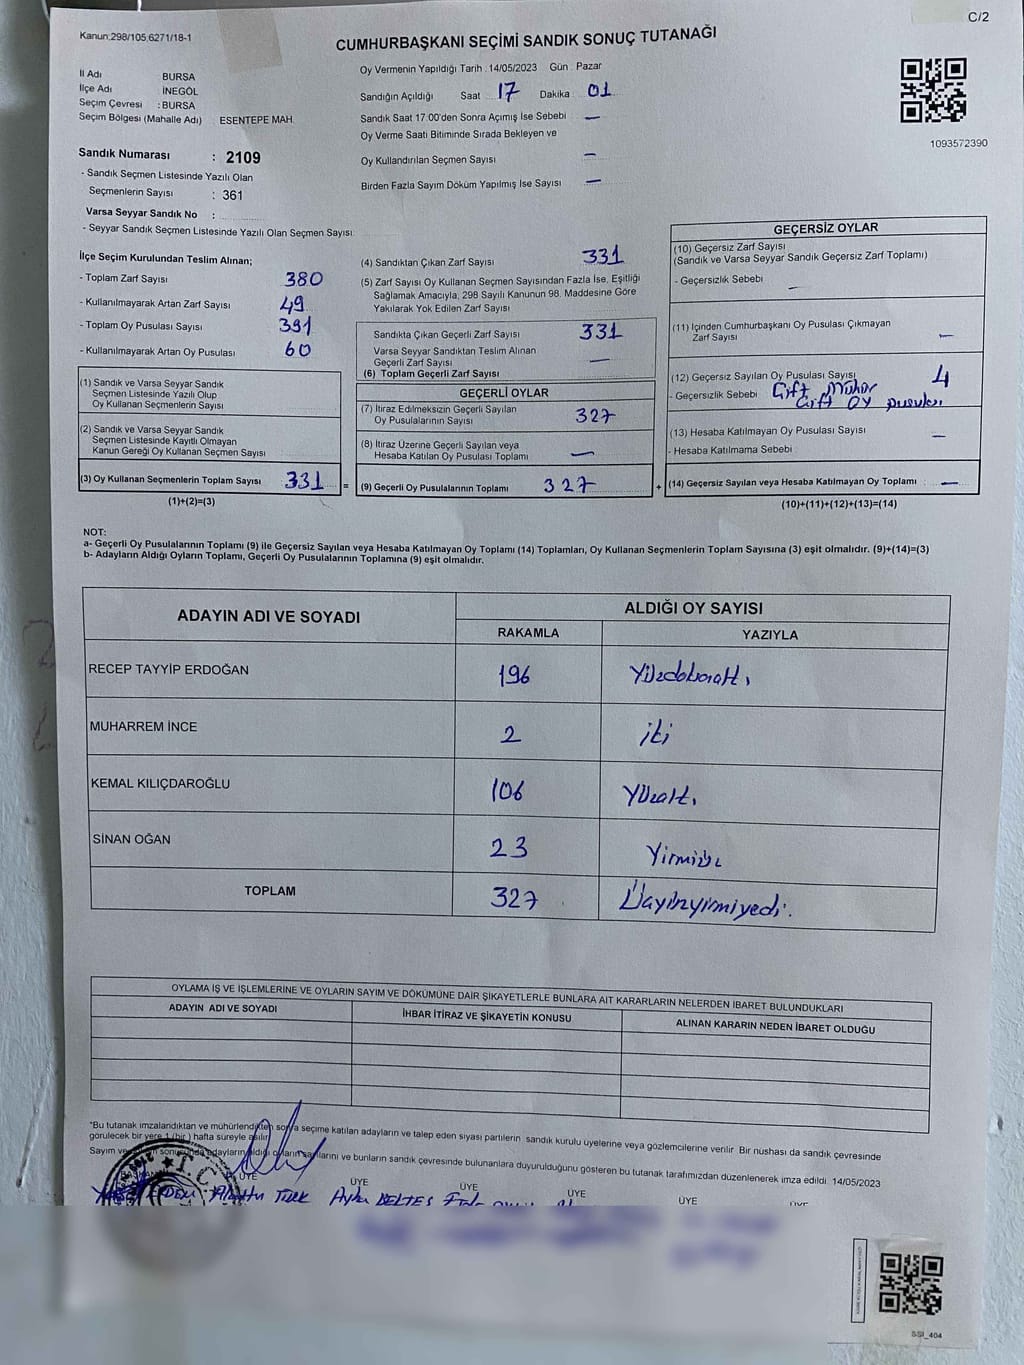 C/2
Kanun:298/105;6271/18-1
CUMHURBAŞKANI SEÇİMİ SANDIK SONUÇ TUTANAĞI
İl Adı BURSA
İlçe Adı İNEGÖL
Seçim Çevresi : BURSA
Seçim Bölgesi (Mahalle Adı) : ESENTEPE MAH.
Sandık Numarası : 2109
- Sandık Seçmen Listesinde Yazılı Olan
Seçmenlerin Sayısı : 361
Varsa Seyyar Sandık No :
- Seyyar Sandık Seçmen Listesinde Yazılı Olan Seçmen Sayısı:
Oy Vermenin Yapıldığı Tarih : 14/05/2023 Gün : Pazar
Sandığın Açıldığı Saat 17 Dakika 01
Sandık Saat 17:00'den Sonra Açımış İse Sebebi —
Oy Verme Saati Bitiminde Sırada Bekleyen ve
Oy Kullandırılan Seçmen Sayısı —
Birden Fazla Sayım Döküm Yapılmış İse Sayısı —
1093572390
İlçe Seçim Kurulundan Teslim Alınan;
- Toplam Zarf Sayısı 380
- Kullanılmayarak Artan Zarf Sayısı 49
- Toplam Oy Pusulası Sayısı 391
- Kullanılmayarak Artan Oy Pusulası 60
(1) Sandık ve Varsa Seyyar Sandık
Seçmen Listesinde Yazılı Olup
Oy Kullanan Seçmenlerin Sayısı
(2) Sandık ve Varsa Seyyar Sandık
Seçmen Listesinde Kayıtlı Olmayan
Kanun Gereği Oy Kullanan Seçmen Sayısı
(3) Oy Kullanan Seçmenlerin Toplam Sayısı 331 =
(1)+(2)=(3)
(4) Sandıktan Çıkan Zarf Sayısı 331
(5) Zarf Sayısı Oy Kullanan Seçmen Sayısından Fazla İse, Eşitliği
Sağlamak Amacıyla; 298 Sayılı Kanunun 98. Maddesine Göre
Yakılarak Yok Edilen Zarf Sayısı
Sandıkta Çıkan Geçerli Zarf Sayısı 331
Varsa Seyyar Sandıktan Teslim Alınan
Geçerli Zarf Sayısı —
(6) Toplam Geçerli Zarf Sayısı
GEÇERLİ OYLAR
(7) İtiraz Edilmeksizin Geçerli Sayılan
Oy Pusulalarının Sayısı 327
(8) İtiraz Üzerine Geçerli Sayılan veya
Hesaba Katılan Oy Pusulası Toplamı —
(9) Geçerli Oy Pusulalarının Toplamı 327 +
GEÇERSİZ OYLAR
(10) Geçersiz Zarf Sayısı
(Sandık ve Varsa Seyyar Sandık Geçersiz Zarf Toplamı)
- Geçersizlik Sebebi —
(11) İçinden Cumhurbaşkanı Oy Pusulası Çıkmayan
Zarf Sayısı —
(12) Geçersiz Sayılan Oy Pusulası Sayısı 4
- Geçersizlik Sebebi Çift Mühür
Çift OY pusulası
(13) Hesaba Katılmayan Oy Pusulası Sayısı —
- Hesaba Katılmama Sebebi
(14) Geçersiz Sayılan veya Hesaba Katılmayan Oy Toplamı : —
(10)+(11)+(12)+(13)=(14)
NOT:
a- Geçerli Oy Pusulalarının Toplamı (9) ile Geçersiz Sayılan veya Hesaba Katılmayan Oy Toplamı (14) Toplamları, Oy Kullanan Seçmenlerin Toplam Sayısına (3) eşit olmalıdır. (9)+(14)=(3)
b- Adayların Aldığı Oyların Toplamı, Geçerli Oy Pusulalarının Toplamına (9) eşit olmalıdır.
ADAYIN ADI VE SOYADI ALDIĞI OY SAYISI
RAKAMLA YAZIYLA
RECEP TAYYİP ERDOĞAN 196 Yüzdoksanaltı
MUHARREM İNCE 2 iki
KEMAL KILIÇDAROĞLU 106 Yüzaltı
SİNAN OĞAN 23 Yirmiüç
TOPLAM 327 Üçyüzyirmiyedi.
OYLAMA İŞ VE İŞLEMLERİNE VE OYLARIN SAYIM VE DÖKÜMÜNE DAİR ŞİKAYETLERLE BUNLARA AİT KARARLARIN NELERDEN İBARET BULUNDUKLARI
ADAYIN ADI VE SOYADI İHBAR İTİRAZ VE ŞİKAYETİN KONUSU ALINAN KARARIN NEDEN İBARET OLDUĞU
"Bu tutanak imzalandıktan ve mühürlendikten sonra seçime katılan adayların ve talep eden siyasi partilerin sandık kurulu üyelerine veya gözlemcilerine verilir. Bir nushası da sandık çevresinde
görülecek bir yere 1 (bir ) hafta süreyle asılır
Sayım ve sonucunda adayların aldığı oyların sayılarını ve bunların sandık çevresinde bulunanlara duyurulduğunu gösteren bu tutanak tarafımızdan düzenlenerek imza edildi. 14/05/2023
ÜYE ÜYE ÜYE ÜYE ÜYE ÜYE
T.C.
SSI_404